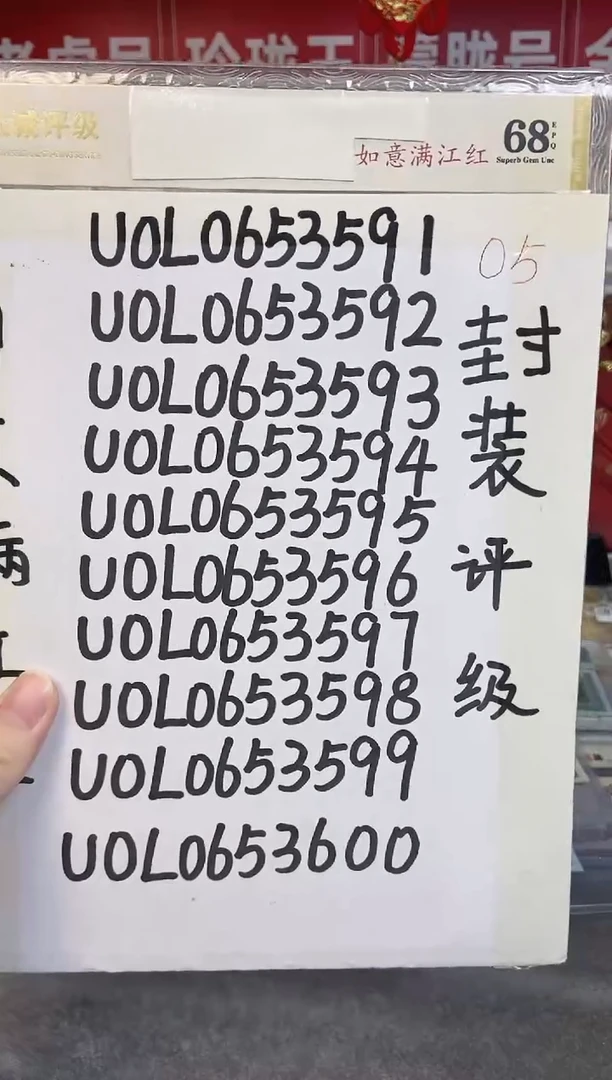 评级
如意满江红
68 EPQ
Superb Gem Unc
05
UOL0653591
UOL0653592
UOL0653593
UOL0653594
UOL0653595
UOL0653596
UOL0653597
UOL0653598
UOL0653599
UOL0653600
封装评级